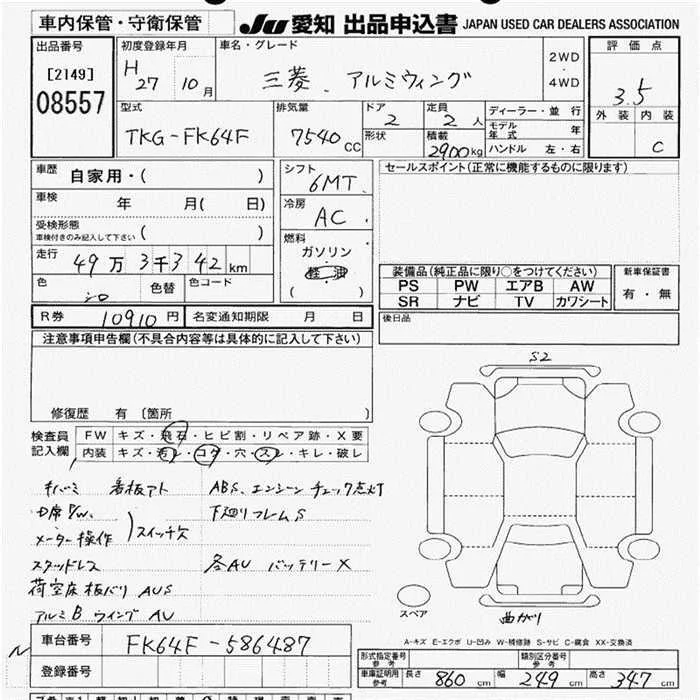 車内保管・守衛保管
JU 愛知 出品申込書 JAPAN USED CAR DEALERS ASSOCIATION
出品番号
[2149]
08557
初度登録年月
H 27 10月
車名・グレード
三菱 . アルミウィング
2WD
・
4WD
評価点
3.5
外装 内装
C
型式
TKG-FK64F
排気量
7540 CC
ドア
2
形状
定員
2 人
積載
2900 kg
ディーラー・並行
モデル年式 年
ハンドル 左・右
車歴 自家用・( )
車検 年 月( 日)
受検形態
車検付きのみ記入して下さい ( )
走行 49万3千342 km
色 シロ
色替
色コード
シフト
6MT
冷房
AC
燃料
ガソリン
軽油
( )
セールスポイント(正常に機能するものに限ります)
装備品(純正品に限り○をつけてください)
PS PW エアB AW
SR ナビ TV カワシート
新車保証書
有・無
R券 10910円
名変通知期限 月 日
後日品
注意事項申告欄(不具合内容等は具体的に記入して下さい)
修復歴 有 〔箇所 〕
検査員
記入欄
FW キズ・飛石・ヒビ割・リペア跡・X要
内装 キズ・汚レ・コゲ・穴・スレ・キレ・破レ
看板アト
ABS、エンジンチェック点灯
P/W、
下廻りフレームS
メーター操作
スイッチ欠
スタッドレス
各AU バッテリーX
荷室床板バリ AUS
アルミB ウイング AU
S2
スペア
曲がり
A-キズ E-エクボ U-凹み W-補修跡 S-サビ C-腐食 XX-交換済
車台番号 FK64F-586487
登録番号
形式指定番号
参考
類別区分番号
参考
車庫証明用
参考
長さ 860 cm 幅 249 cm 高さ 347 cm